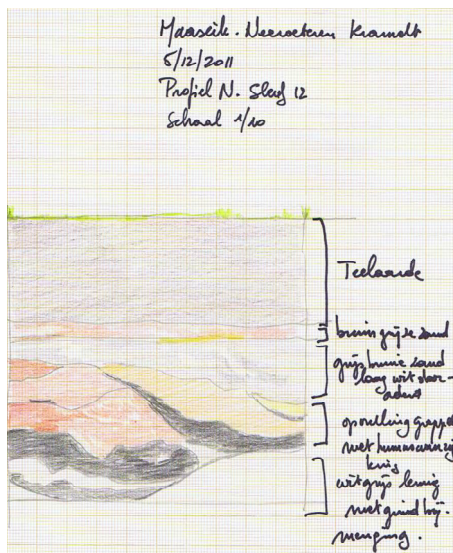 Maaseik. Neeroeteren Kramelt
5/12/2011
Profiel N. Sleuf 12
Schaal 1/10
Teelaarde
bruin grijze zand
grijs bruine zand
laag wit door-
aderd
opvulling greppel
met
witgrijs lemig
met grind bij-
menging.